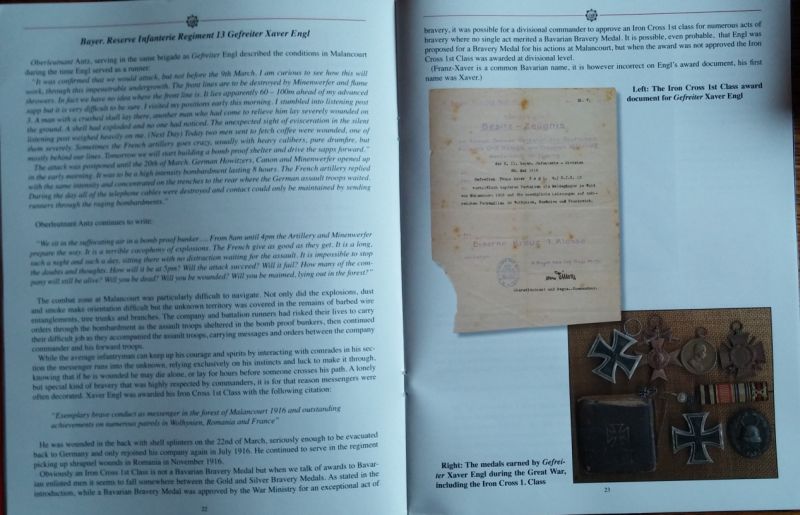 Bayer. Reserve Infanterie Regiment 13 Gefreiter Xaver Engl
Oberleutnant Antz, serving in the same brigade as Gefreiter Engl described the conditions in Malancourt
during the time Engl served as a runner:
"It was confirmed that we would attack, but not before the 9th March. I am curious to see how this will
work, through this impenetrable undergrowth. The front lines are to be destroyed by Minenwerfer and flame
throwers. In fact we have no idea where the front line is. It lies apparently 60 – 100m ahead of my advanced
sapp but it is very difficult to be sure. I visited my positions early this morning. I stumbled into listening post
3. A man with a crushed skull lay there, another man who had come to relieve him lay severely wounded on
the ground. A shell had exploded and no one had noticed. The unexpected sight of evisceration in the silent
listening post weighed heavily on me. (Next Day) Today two men sent to fetch coffee were wounded, one of
them severely. Sometimes the French artillery goes crazy, usually with heavy calibers, pure drumfire, but
mostly behind our lines. Tomorrow we will start building a bomb proof shelter and drive the sapps forward."
The attack was postponed until the 20th of March. German Howitzers, Canon and Minenwerfer opened up
in the early morning. It was to be a high intensity bombardment lasting 8 hours. The French artillery replied
with the same intensity and concentrated on the trenches to the rear where the German assault troops waited.
During the day all of the telephone cables were destroyed and contact could only be maintained by sending
runners through the raging bombardments."
Oberleutnant Antz continues to write:
"We sit in the suffocating air in a bomb proof bunker… From 8am until 4pm the Artillery and Minenwerfer
prepare the way. It is a terrible cocophony of explosions. The French give as good as they get. It is a long,
such a night and such a day, sitting there with no distraction waiting for the assault. It is impossible to stop
the doubts and thoughts. How will it be at 5pm? Will the attack succeed? Will it fail? How many of the com-
pany will still be alive? Will you be dead? Will you be wounded? Will you be maimed, lying out in the forest?"
The combat zone at Malancourt was particularly difficult to navigate. Not only did the explosions, dust
and smoke make orientation difficult but the unknown territory was covered in the remains of barbed wire
entanglements, tree trunks and branches. The company and battalion runners had risked their lives to carry
orders through the bombardment as the assault troops sheltered in the bomb proof bunkers, then continued
their difficult job as they accompanied the assault troops, carrying messages and orders between the company
commander and his forward troops.
While the average infantryman can keep up his courage and spirits by interacting with comrades in his sec-
tion the messenger runs into the unknown, relying exclusively on his instincts and luck to make it through,
knowing that if is wounded he may die alone, or lay for hours before someone crosses his path. A lonely
but special kind of bravery that was highly respected by commanders, it is for that reason messengers were
often decorated. Xaver Engl was awarded his Iron Cross 1st Class with the following citation:
"Exemplary brave conduct as messenger in the forest of Malancourt 1916 and outstanding
achievements on numerous patrols in Wolhynien, Romania and France"
He was wounded in the back with shell splinters on the 22nd of March, seriously enough to be evacuated
back to Germany and only rejoined his company again in July 1916. He continued to serve in the regiment
picking up shrapnel wounds in Romania in November 1916.
Obviously an Iron Cross 1st Class is not a Bavarian Bravery Medal but when we talk of awards to Bavar-
ian enlisted men it seems to fall somewhere between the Gold and Silver Bravery Medals. As stated in the
introduction, while a Bavarian Bravery Medal was approved by the War Ministry for an exceptional act of
22
bravery, it was possible for a divisional commander to approve an Iron Cross 1st class for numerous acts of
bravery where no single act merited a Bavarian Bravery Medal. It is possible, even probable, that Engl was
proposed for a Bravery Medal for his actions at Malancourt, but when the award was not approved the Iron
Cross 1st Class was awarded at divisional level.
(Franz-Xaver is a common Bavarian name, it is however incorrect on Engl's award document, his first
name was Xaver.)
Left: The Iron Cross 1st Class award
document for Gefreiter Xaver Engl
Besitz-Zeugnis
Eiserne Kreuz 1 Klasse
Oberstleutnant und Regts.-Kommandeur.
Right: The medals earned by Gefrei-
ter Xaver Engl during the Great War,
including the Iron Cross 1. Class
23